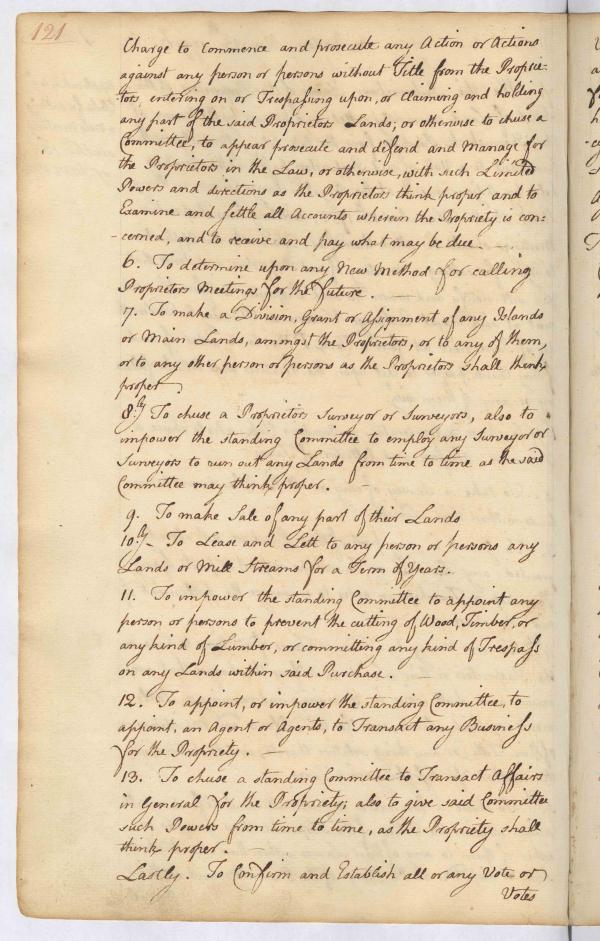 121
Charge to Commence and prosecute any Action or Actions
against any person or persons without Title from the Proprie-
tors, entering on or Trespassing upon, or claiming and holding
any part of the said Proprietors Lands; or otherwise to chuse a
Committee, to appear prosecute and defend and Manage for
the Proprietors in the Law, or otherwise, with such Limited
Powers and directions as the Proprietors think proper and to
Examine and settle all Accounts wherein the Propriety is con-
-cerned, and to receive and pay what may be due. —
6. To determine upon any New Method for calling
Proprietors Meetings for the future. —
7. To make a Division, Grant or Assignment of any Islands
or Main Lands, amongst the Proprietors, or to any of them,
or to any other person or persons as the Proprietors shall think
proper.
8.ly To chuse a Proprietors Surveyor or Surveyors, also to
impower the standing Committee to employ any Surveyor or
Surveyors to run out any Lands from time to time as the said
Committee may think proper. —
9. To make Sale of any part of their Lands
10.ly - To Lease and Lett to any person or persons any
Lands or Mill Streams for a Term of Years.
11. To impower the standing Committee to appoint any
person or persons to prevent the cutting of Wood, Timber, or
any kind of Lumber, or committing any kind of Trespass
on any Lands within said Purchase. —
12. To appoint, or impower the standing Committee, to
appoint, an Agent or Agents, to Transact any Business
for the Propriety. —
13. To chuse a standing Committee to Transact Affairs
in General for the Propriety; also to give said Committee
such Powers from time to time, as the Propriety shall
think proper. —
Lastly. To Confirm and Establish all or any Vote or
Votes